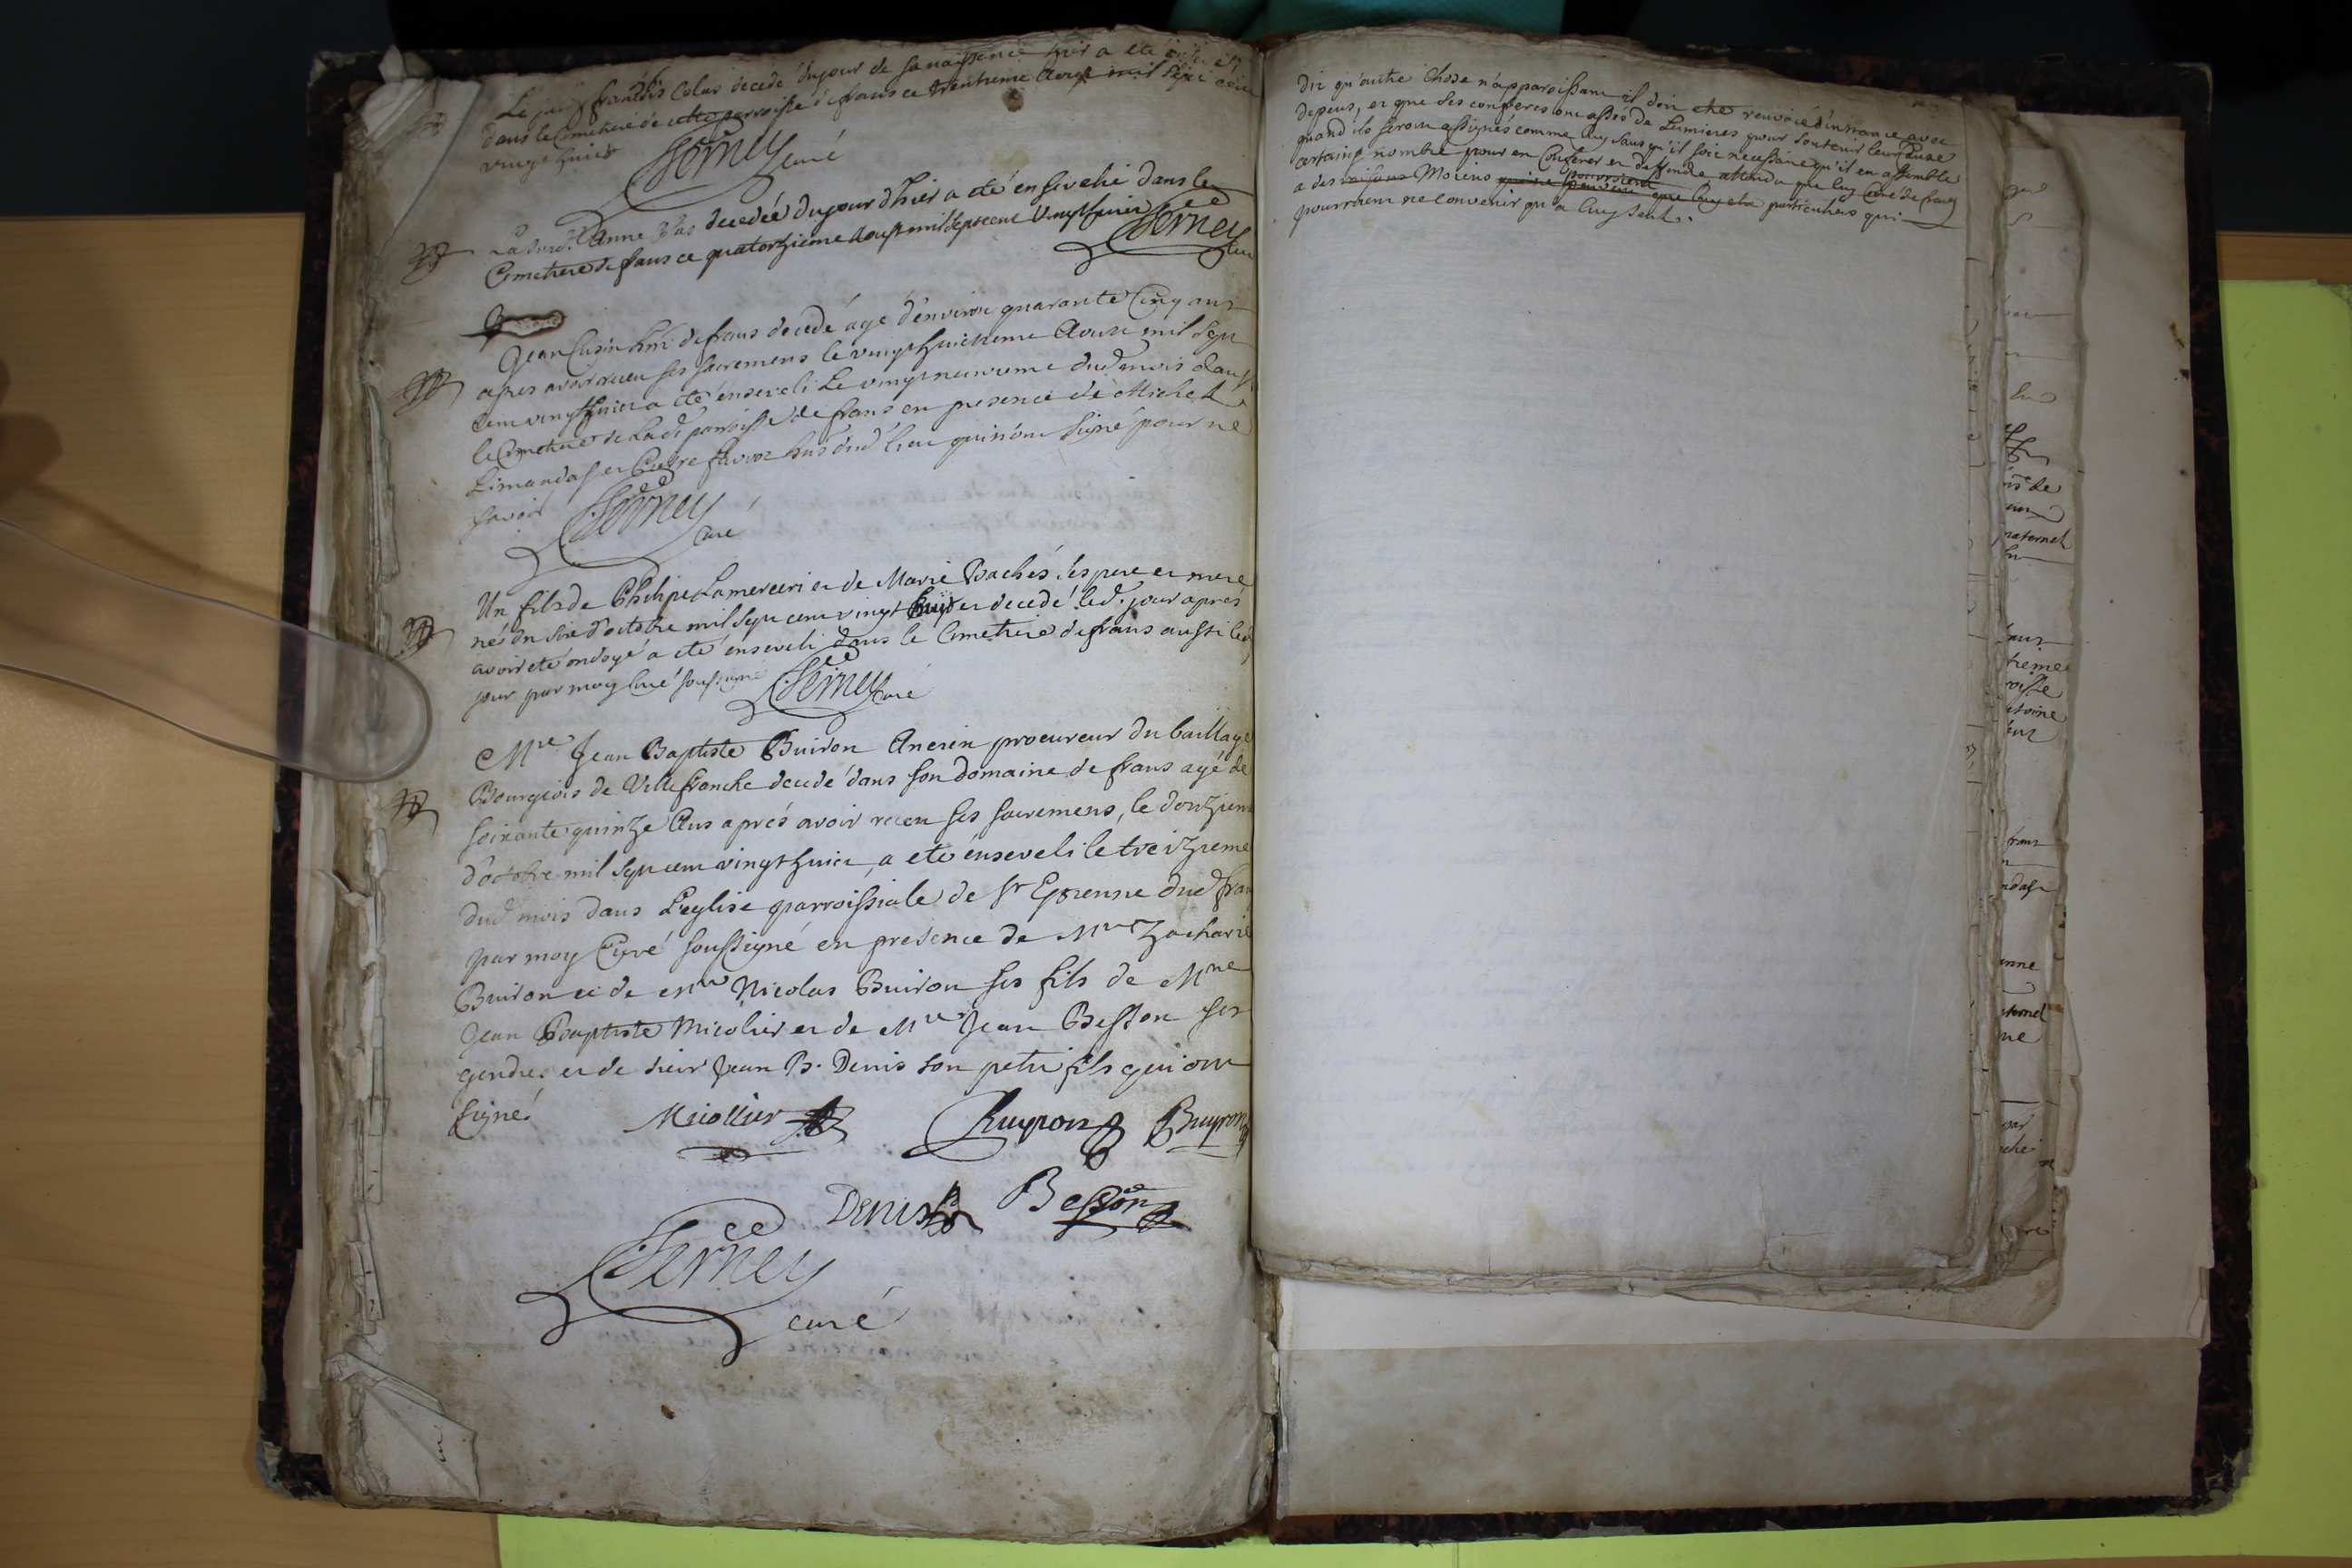 françois Colas decedé du jour de sa naissance hier a eté
dans le Cimetiere de cette parroisse de frans ce trentieme mil sept cent
vingt huict
Serney curé
Anne decedée du jour d'hier a eté enseveli dans le
Cimetiere de frans ce quatorzieme aoust mil sept cent vingt huict Serney
Curé
Jean Cusin hãt de frans decedé agé d'environ quarante Cinq ans
apres avoir receu ses sacremens le vingt huictieme mil sept
cent vingt huict a eté enseveli le vingt neuvieme dud mois dans
le Cimetiere de lad. parroisse de frans en presence de Michel
Limandas et favre dud lieu qui n'ont signé pour ne
savoir Serney
Curé
Un fils de Philipe Lamercerie et de Marie Bachés ses pere et mere
né du six d'octobre mil sept cent vingt huyt et decedé led. jour aprés
avoir eté ondoyé a eté enseveli dans le Cimetiere de frans aussi led
jour par moy Curé soussigné Serney Curé
Mre Jean Baptiste Buiron Ancien procureur du baillage
Bourgeois de Villefranche decedé dans son domaine de frans agé de
soixante quinze Ans aprés avoir receu ses sacremens, le douzieme
d'octobre mil sept cent vingt huict, a eté enseveli le treizieme
dud mois dans L'eglise parroissiale de St Etienne dud frans
par moy Curé soussigné en presence de Mre Zacharie
Buiron et de Mre Nicolas Buiron ses fils de Mre
Jean Baptiste Micolier et de Mre Jean Besson ses
gendres et de sieur Jean B. Denis son petit fils qui ont
signé Micollier Buyron Buyron
Denis Besson
Serney
curé
Dit qu'autre chose n'apparoissant il doit etre renvoié d'instance avec
depens, et que ses confreres ont assés de Lumieres pour soutenir leur Cause
quand ils seront assignés comme luy sans qu'il soit necessaire qu'il en assemble
certains nombre pour en Conferer et deffendre attendu que luy Curé de frans
a des Moiens particuliers qui
pourroient ne convenir qu'a luy seul.